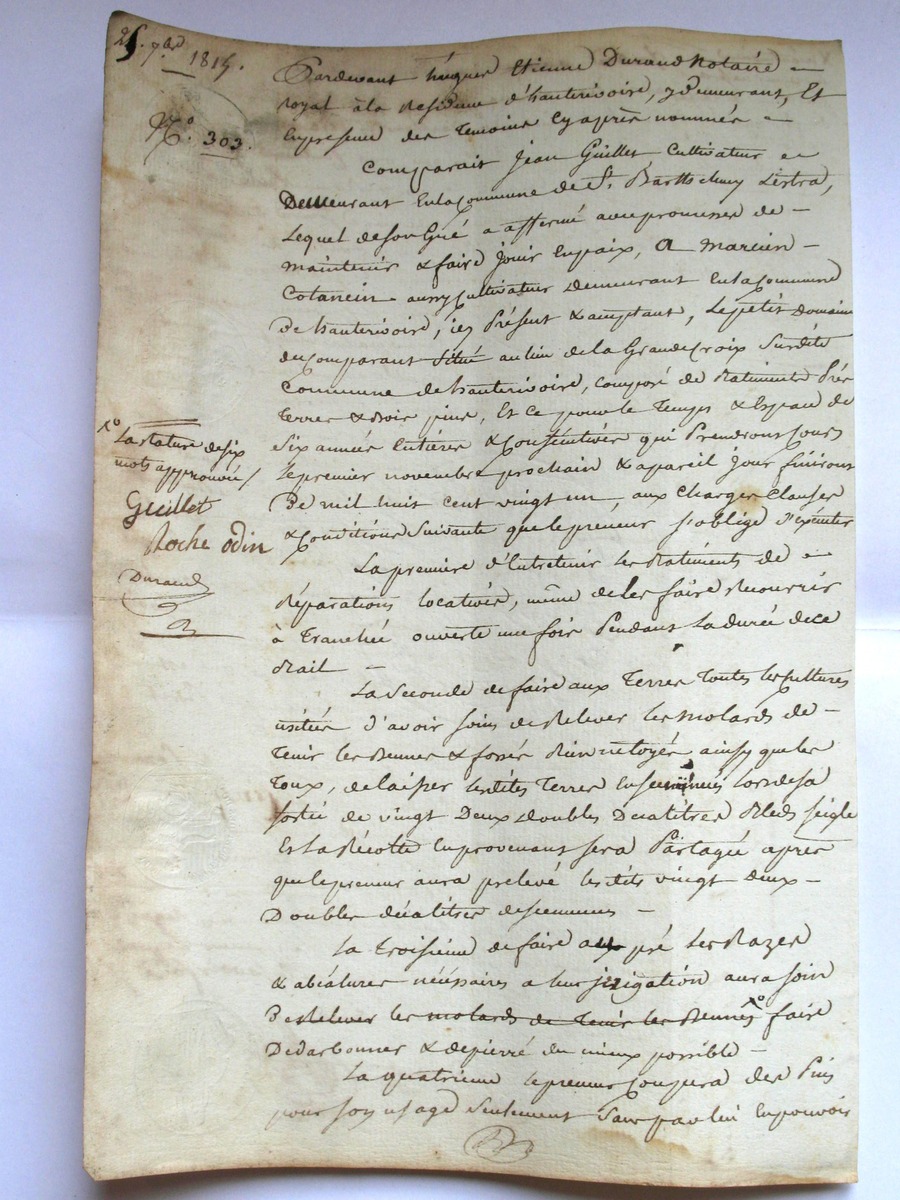 25. 7bre 1815.
N.o 303.
Pardevant hugues Etienne Durand Notaire
royal à la Residence d'hauterivoire, y demeurant, Et
En presence des Temoins Cy après nommés
Comparait Jean Guillet Cultivateur
Demeurant En la Commune de St. Barthelemy Lestra,
Lequel de son Gré a affermé avec promesse de
maintenir & faire jouir En paix, a
Cotancin aussy Cultivateur demeurant En la Commune
De hauterivoire, icy Présent & acceptant, Le petit Domaine
du Comparant Situé au lieu de la Grande Croix Surdite
Commune de hauterivoire, Composé de Batiments Prés
Terres & Bois pins, Et ce pour le Temps & Espace de
Six années Entières & Consécutives qui Prendrons Cours
Le premier novembre prochain & apareil jour finirons
De mil huit cent vingt un, aux Charges Clauses
& Conditions Suivante que le preneur s'oblige d'exécuter
La premiere d'Entretenir les Batiments de
Réparations locatives, même de les faire Recouvrir
à Tranchée ouverte une fois Pendant La durée de ce
Bail
La Seconde de faire aux Terres Toutes les Cultures
usitées d'avoir soins de Relever les molards de
Tenir les Rennes & fossés Bien netoyés ainsy que les
de laisser lesdites Terres Ensemmées Lors de sa
sortie de vingt Deux doubles Décalitres Bleds seigle
Et La Récolte En provenant sera Partagée après
que le preneur aura prelevé lesdits vingt Deux
Doubles décalitres de semences
La Troisieme de faire aux pré les Razes
& nécéssaires a leur irrigation aura soin
De Relever les molards de Tenir les Rennes Xo faire
Dedarbonner & depierré du mieux possible
La quatrieme le preneur Coupera des Pins
pour son usage Seulement Sans par lui En pouvoir
Xo
La rature de six
mots approuvée /
Guillet
Roche odin
Durand